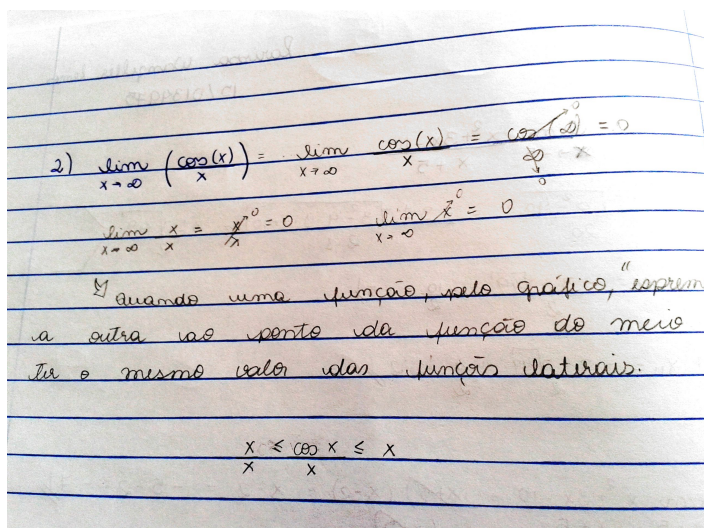 2) lim x→∞ (cos(x)/x) = lim x→∞ cos(x)/x = cos(∞)/∞ = 0
0
0
lim x→∞ x/x = x/x 0 = 0 lim x→∞ x 0 = 0
Quando uma função, pelo gráfico, "esprem
a outra ao ponto da função do meio
ter o mesmo valor das funçõs laterais.
x/x ≤ cos x/x ≤ x